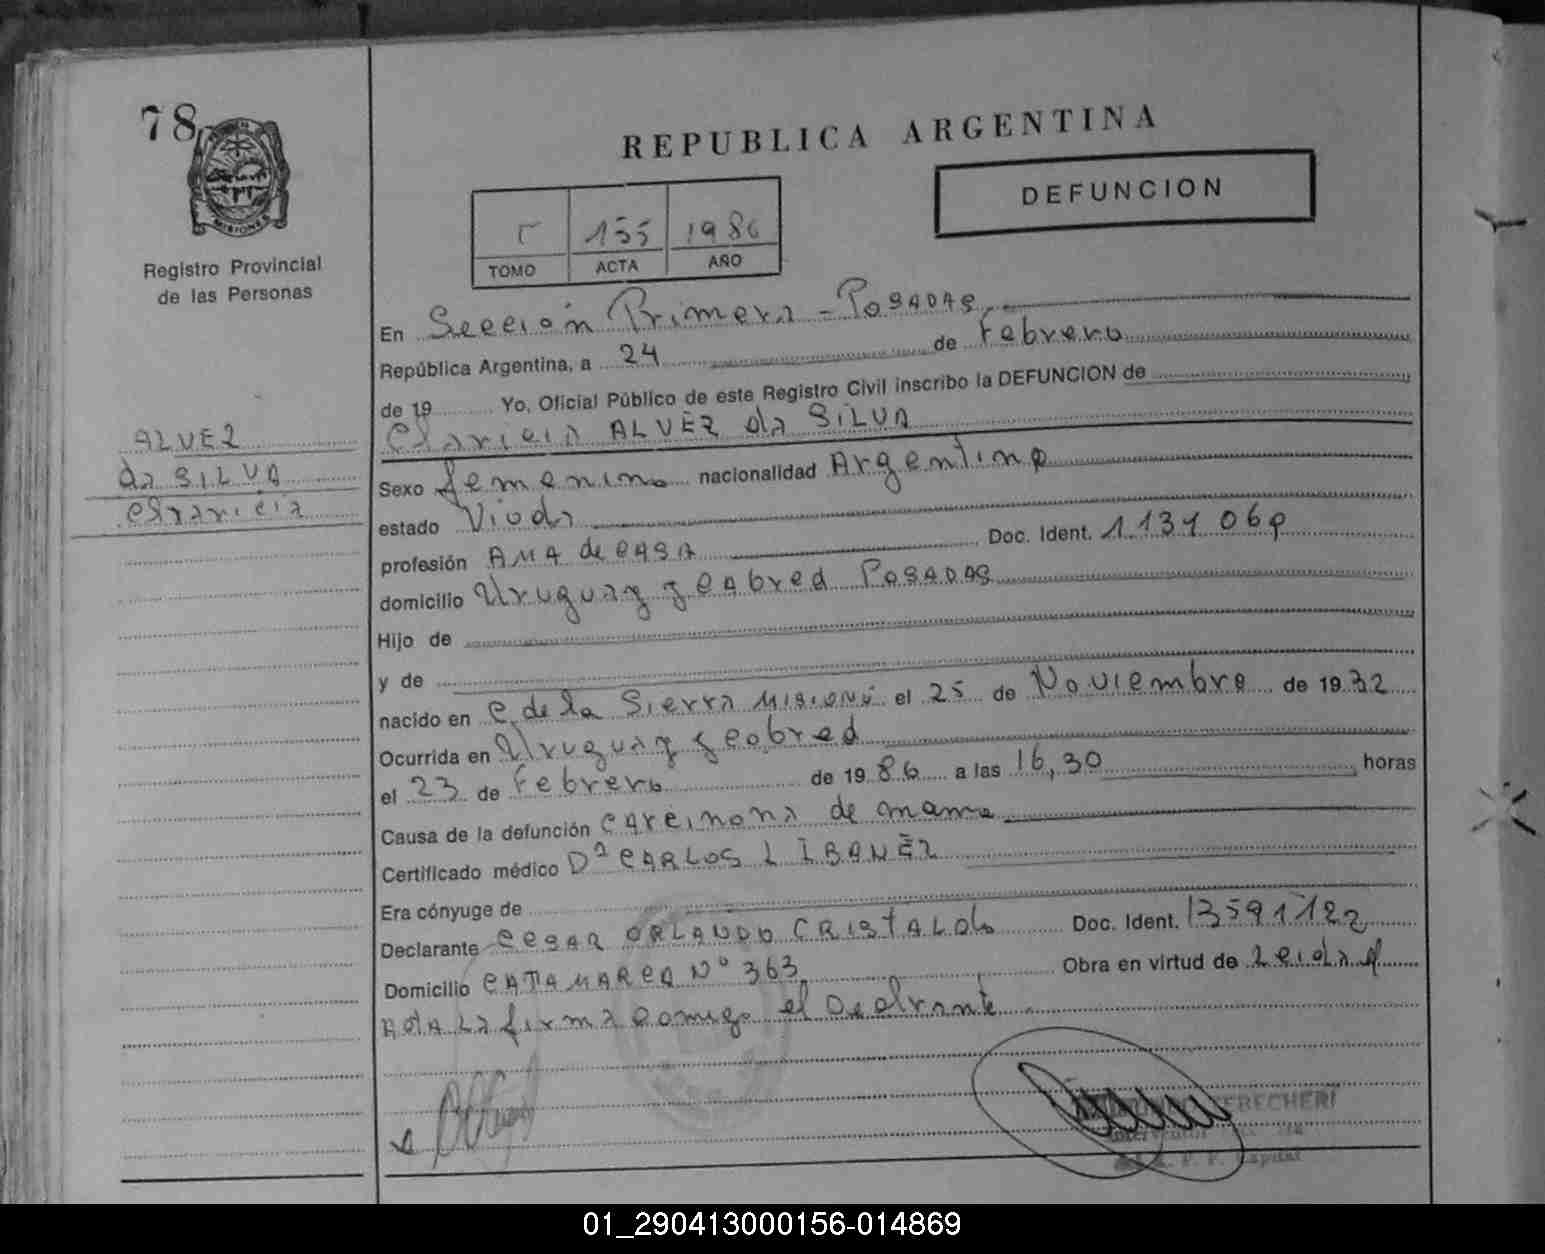 78
MISIONES
Registro Provincial
de las Personas
ALVEZ
da SILVA
Claricia
REPUBLICA ARGENTINA
DEFUNCION
155 1986
TOMO ACTA AÑO
En Sección Primera - POSADAS
República Argentina, a 24 de Febrero
de 19 Yo, Oficial Público de este Registro Civil inscribo la DEFUNCION de
Claricia ALVEZ da SILVA
Sexo femenino nacionalidad Argentina
estado Viuda
profesión AMA de CASA Doc. Ident.
domicilio Uruguay y Cabred POSADAS
Hijo de
y de
nacido en C. de la Sierra MISIONES el 25 de Noviembre de 1932
Ocurrida en Uruguay y Cabred
el 23 de Febrero de 1986 a las 16,30 horas
Causa de la defunción Carcinoma de mama
Certificado médico CARLOS L IBAÑEZ
Era cónyuge de
Declarante CESAR ORLANDO CRISTALDO Doc. Ident. 13591122
Domicilio CATAMARCA Nº 363 Obra en virtud de Leida el
Acta La firma comigo el Declrante
Capital
01_290413000156-014869